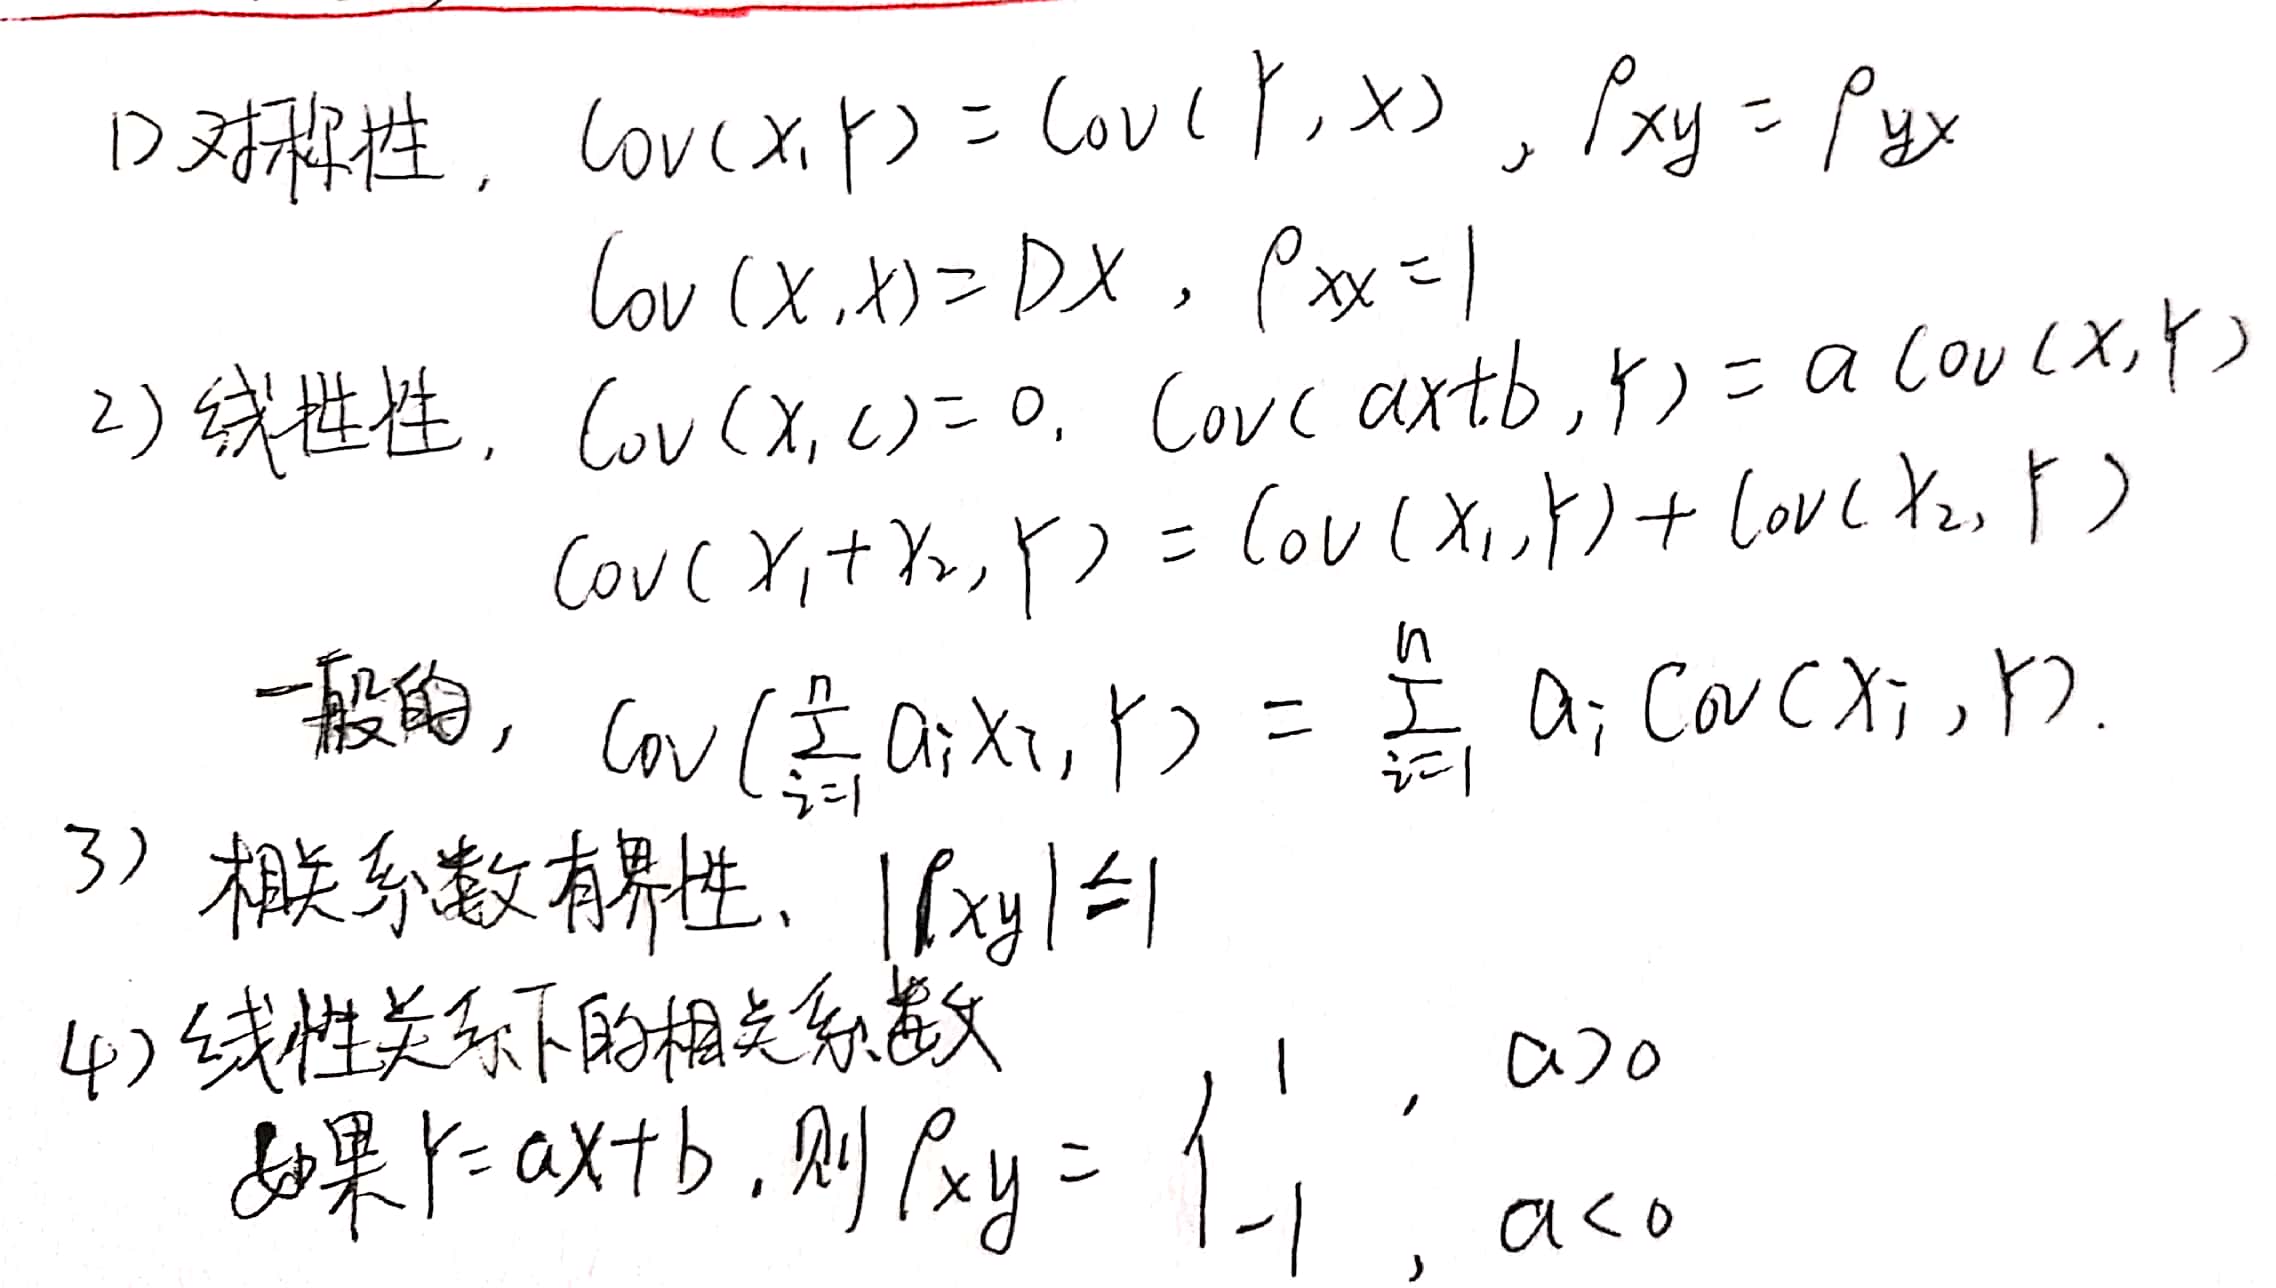 1) 对称性, Cov(X,Y) = Cov(Y,X), ρxy = ρyx
Cov(X,X) = DX, ρxx = 1
2) 线性性, Cov(X,c) = 0. Cov(ax+b,Y) = a Cov(X,Y)
Cov(X₁+X₂,Y) = Cov(X₁,Y) + Cov(X₂,Y)
一般的, Cov(∑ⁿᵢ₌₁ aᵢXᵢ,Y) = ∑ⁿᵢ₌₁ aᵢ Cov(Xᵢ,Y).
3) 相关系数有界性、|ρxy| ≤ 1
4) 线性关系下的相关系数
如果Y=aX+b,则ρxy = { 1, a>0
-1, a<0